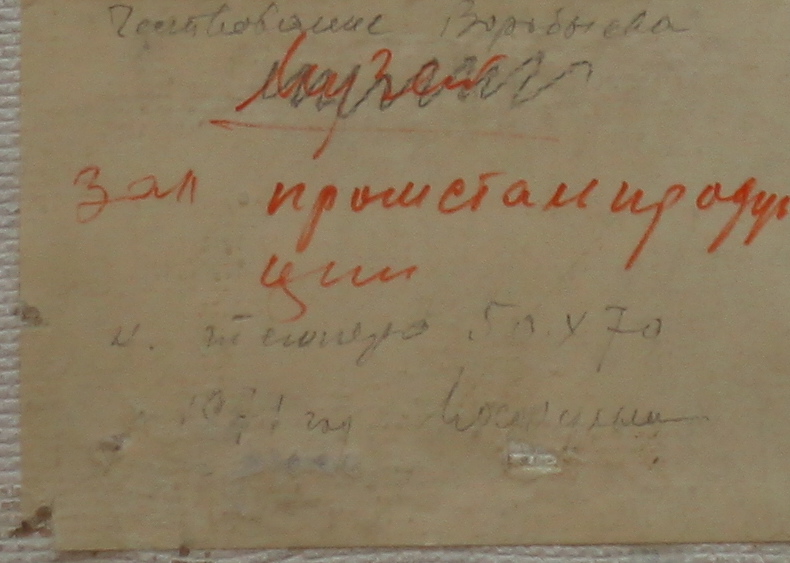 Чествование Воробьева
Музей
зап промстампродук
ции
м. темпера 50 х 70
1971 год